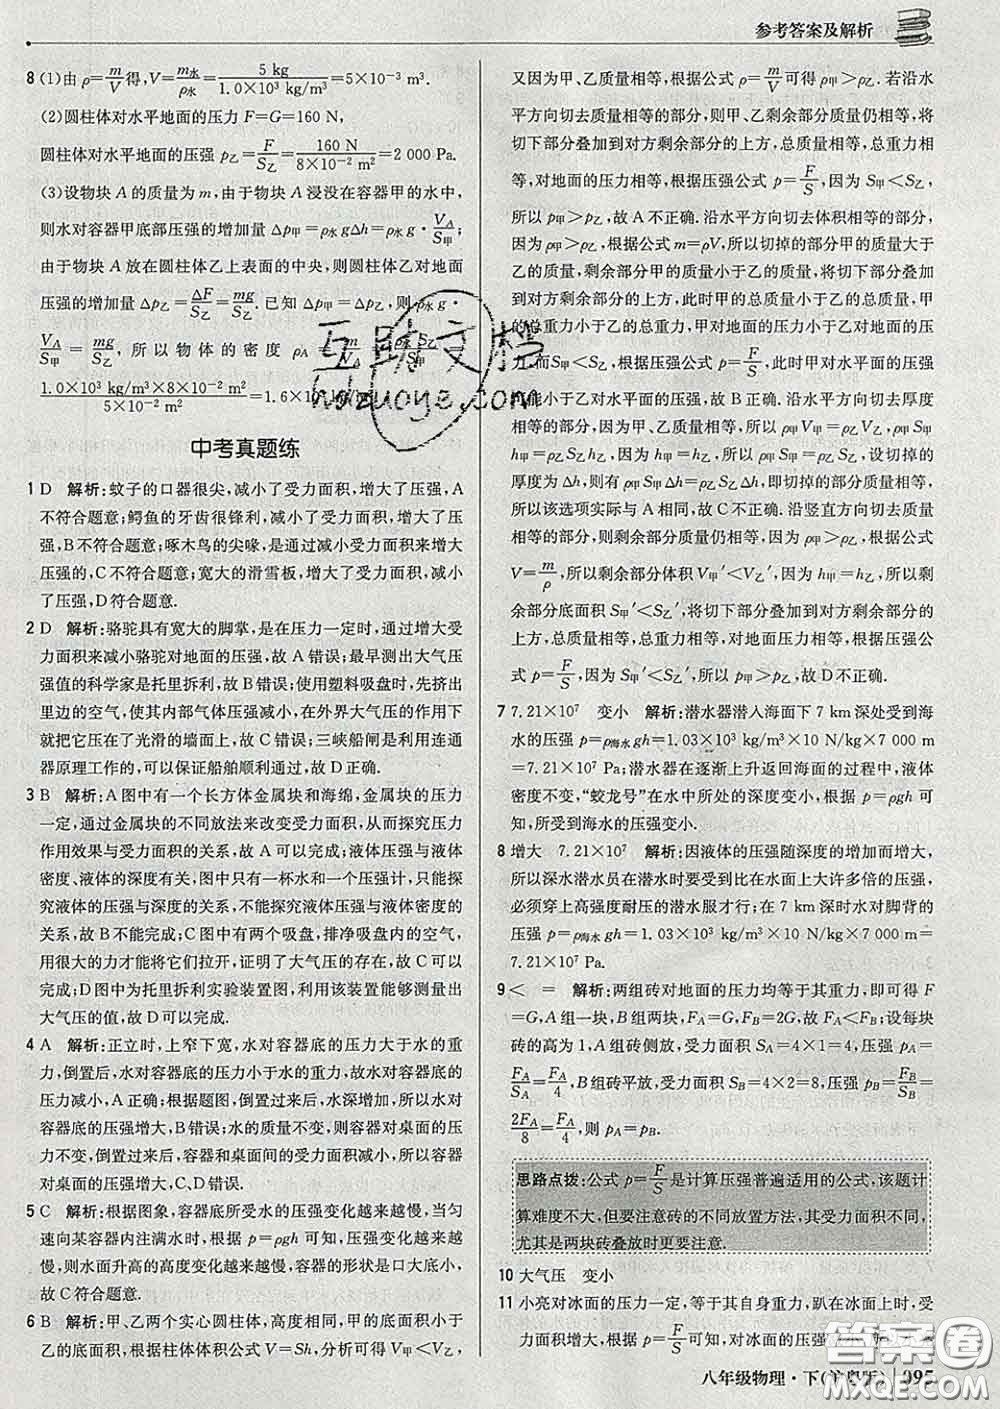 参考答案及解析
8 (1)由 ρ=m/V 得,V=m水/ρ水=5 kg/1.0×10³ kg/m³=5×10⁻³ m³.
(2)圆柱体对水平地面的压力 F=G=160 N,
圆柱体对水平地面的压强 p乙=F/S乙=160 N/8×10⁻² m²=2 000 Pa.
(3)设物块 A 的质量为 m,由于物块 A 浸没在容器甲的水中,
则水对容器甲底部压强的增加量 Δp甲=ρ水 gΔh=ρ水 g·V_A/S甲;
由于物块 A 放在圆柱体乙上表面的中央,则圆柱体乙对地面
压强的增加量 Δp乙=ΔF/S乙=mg/S乙. 已知 Δp甲=Δp乙,则 ρ水 g·
V_A/S甲=mg/S乙,所以物体的密度 ρ_A=
1.0×10³ kg/m³×8×10⁻² m²/5×10⁻² m²=1.6×10
中考真题练
1 D 解析:蚊子的口器很尖,减小了受力面积,增大了压强,A
不符合题意;鳄鱼的牙齿很锋利,减小了受力面积,增大了压
强,B不符合题意;啄木鸟的尖喙,是通过减小受力面积来增大
压强的,C不符合题意;宽大的滑雪板,增大了受力面积,减小
了压强,D符合题意.
2 D 解析:骆驼具有宽大的脚掌,是在压力一定时,通过增大受
力面积来减小骆驼对地面的压强,故 A 错误;最早测出大气压
强值的科学家是托里拆利,故 B 错误;使用塑料吸盘时,先挤出
里边的空气,使其内部气体压强减小,在外界大气压的作用下
就把它压在了光滑的墙面上,故 C 错误;三峡船闸是利用连通
器原理工作的,可以保证船舶顺利通过,故 D 正确.
3 B 解析:A图中有一个长方体金属块和海绵,金属块的压力
一定,通过金属块的不同放法来改变受力面积,从而探究压力
作用效果与受力面积的关系,故 A 可以完成;液体压强与液体
密度、液体的深度有关,B图中只有一杯水和一个压强计,只能
探究液体的压强与深度的关系,不能探究液体压强与液体密度
的关系,故 B 不能完成;C图中有两个吸盘,排净吸盘内的空气,
用很大的力才能将它们拉开,证明了大气压的存在,故 C 可以
完成;D 图中为托里拆利实验装置图,利用该装置能够测量出
大气压的值,故 D 可以完成.
4 A 解析:正立时,上窄下宽,水对容器底的压力大于水的重
力,倒立时,水对容器底的压力小于水的重力,故水对容器底的
压力减小,A正确;根据题图,倒置过来后,水深增加,所以水对
容器底的压强增大,故 B 错误;水的质量不变,则容器对桌面的
压力不变,倒置过来后,容器和桌面间的受力面积减小,所以容器
对桌面的压强增大,C、D错误.
5 C 解析:根据图象,容器底所受水的压强变化越来越慢,当匀
速向某容器内注满水时,根据 p=ρgh 可知,压强变化越来越
慢,则水面升高的高度变化越来越慢,容器的形状是口大底小,
故 C 符合题意.
6 B 解析:甲、乙两个实心圆柱体,高度相同,甲的底面积小于
乙的底面积,根据柱体体积公式 V=Sh,分析可得 V甲<V乙,
又因为甲、乙质量相等,根据公式 ρ=m/V 可得 ρ甲>ρ乙. 若沿水
平方向切去质量相等的部分,则甲、乙剩余部分质量仍相等,将
切下部分叠加到对方剩余部分的上方,总质量相等,总重力相
等,对地面的压力相等,根据压强公式 p=F/S,因为 S甲<S乙,
所以 p甲>p乙,故 A 不正确. 沿水平方向切去体积相等的部分,
因为 ρ甲>ρ乙,根据公式 m=ρV,所以切掉的部分甲的质量大于
乙的质量,剩余部分甲的质量小于乙的质量,将切下部分叠加
到对方剩余部分的上方,此时甲的总质量小于乙的总质量,甲
的总重力小于乙的总重力,甲对地面的压力小于乙对地面的压
力,而S甲<S乙,根据压强公式 p=F/S,此时甲对水平面的压强
可能小于乙对水平面的压强,故 B 正确. 沿水平方向切去厚度
相等的部分,因为质量相等,所以 ρ甲V甲=ρ乙V乙,ρ甲S甲
h甲=ρ乙S乙h乙,因为 h甲=h乙,所以 ρ甲S甲=ρ乙S乙,设切掉的
厚度为 Δh,则有 ρ甲S甲Δh=ρ乙S乙Δh,即切去的质量相等,
所以该选项实际与 A 相同,故 C 不正确. 沿竖直方向切去质量
相等的部分,则剩余部分质量仍相等,因为 ρ甲>ρ乙,根据公式
V=m/ρ,所以剩余部分体积 V甲′<V乙′,因为 h甲=h乙,所以剩
余部分底面积 S甲′<S乙′,将切下部分叠加到对方剩余部分的
上方,总质量相等,总重力相等,对地面压力相等,根据压强公
式 p=F/S,因为 S甲′<S乙′,所以 p甲′>p乙′,故 D 不正确.
7 7.21×10⁷ 变小 解析:潜水器潜入海面下 7 km 深处受到海
水的压强 p=ρ海水 gh=1.03×10³ kg/m³×10 N/kg×7 000 m
=7.21×10⁷ Pa;潜水器在逐渐上升返回海面的过程中,液体
密度不变,“蛟龙号”在水中所处的深度变小,根据 p=ρgh 可
知,所受到海水的压强变小.
8 增大 7.21×10⁷ 解析:因液体的压强随深度的增加而增大,
所以深水潜水员在潜水时要受到比在水面上大许多倍的压强,
必须穿上高强度耐压的潜水服才行;在 7 km 深时水对脚背的
压强 p=ρ海水 gh=1.03×10³ kg/m³×10 N/kg×7 000 m=
7.21×10⁷ Pa.
9 < = 解析:两组砖对地面的压力均等于其重力,即可得 F
=G,A 组一块,B 组两块,F_A=G,F_B=2G,故 F_A<F_B;设每块
砖的高为 1,A 组砖侧放,受力面积 S_A=4×1=4,压强 p_A=
F_A/S_A=F_A/4,B 组砖平放,受力面积 S_B=4×2=8,压强 p_B=F_B/S_B=
2F_A/8=F_A/4,则 p_A=p_B.
思路点拨:公式 p=F/S是计算压强普遍适用的公式,该题计
算难度不大,但要注意砖的不同放置方法,其受力面积不同,
尤其是两块砖叠放时更要注意.
10 大气压 变小
11 小亮对冰面的压力一定,等于其自身重力,趴在冰面上时,受
力面积增大,根据 p=F/S可知,对冰面的压强
八年级物理·下 095
互助文档
hdzuoye.com
答案圈
MXQE.COM